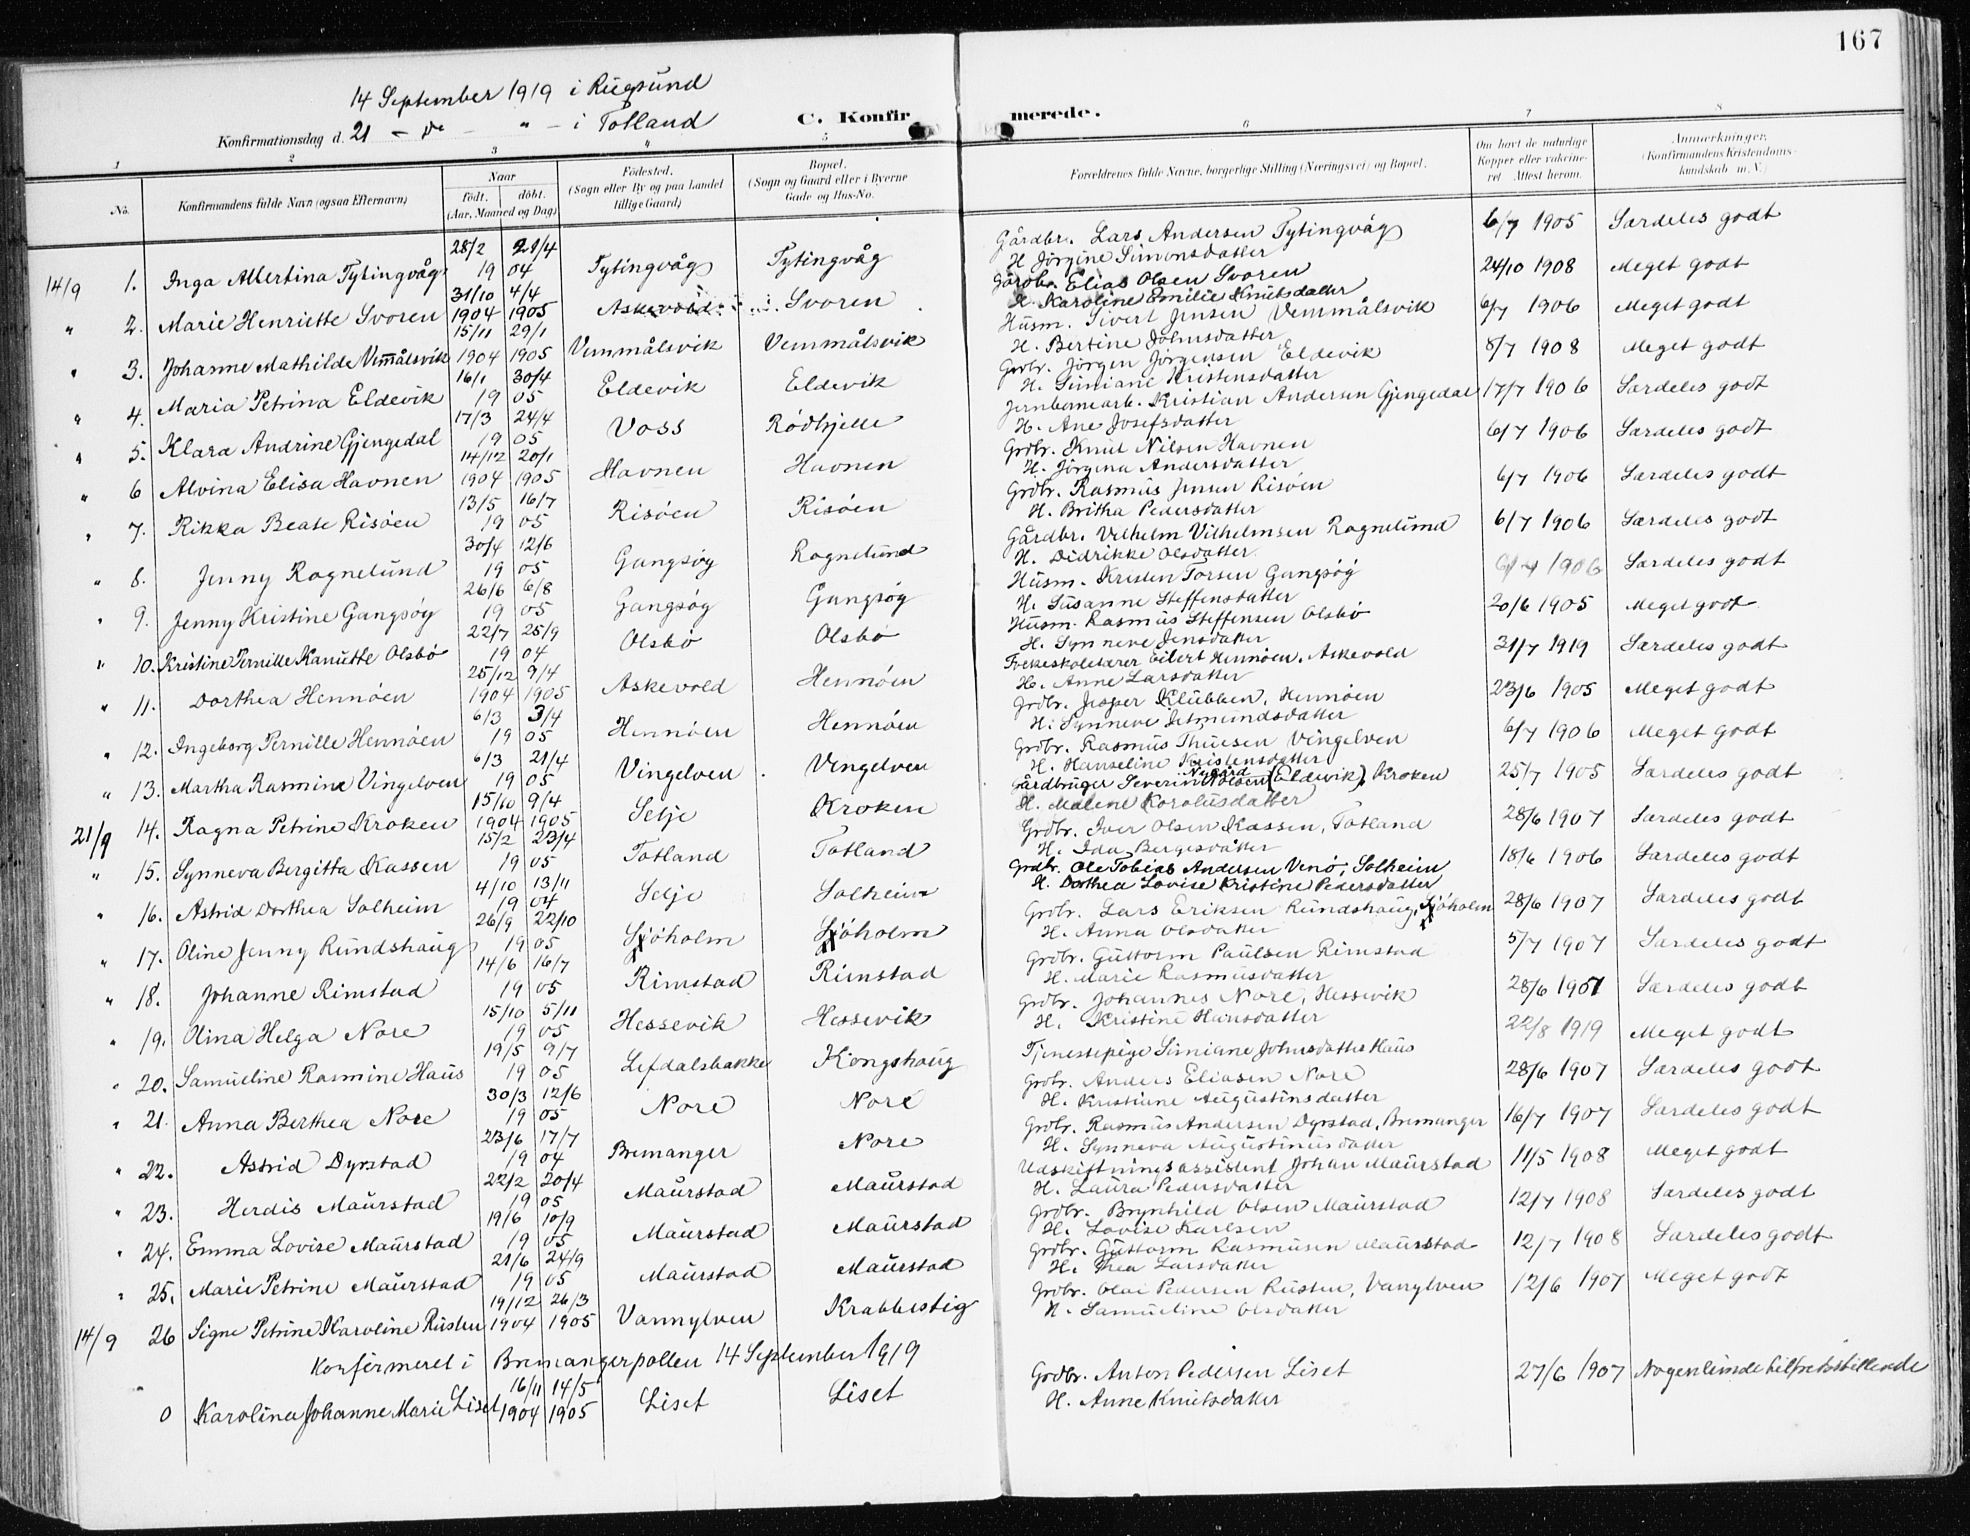 167
14 September 1919 i Rugsund
Konfirmationsdag d. 21 – do – " – i Totland
C. Konfirmerede.
1 2 3 4 5 6 7 8
No. Konfirmandens fulde Navn (ogsaa Efternavn) Naar født. døbt. (Aar, Maaned og Dag) Fødested. (Sogn eller By og paa Landet tillige Gaard) Bopæl. (Sogn og Gaard eller i Byerne Gade og Hus-No. Forældrenes fulde Navne, borgerlige Stilling (Næringsvei) og Bopæl. Om havt de naturlige Kopper eller vakcineret Attest herom. Anmærkninger. (Konfirmandens Kristendomskundskab m. V.)
14/9 1. Inga Albertina Tytingvåg 28/2 1904 21/4 Tytingvåg Tytingvåg Gårdbr. Lars Andersen Tytingvåg H. Jörgine Simonsdatter 6/7 1905 Særdeles godt
" 2. Marie Henriette Svoren 31/10 1904 4/4 1905 Askevold Svoren Gårdbr. Elias Olsen Svoren H. Karoline Emilie Knutsdatter 24/10 1908 Meget godt
" 3. Johanne Mathilde Vemmålsvik 15/11 1904 29/1 1905 Vemmålsvik Vemmålsvik Husm. Sivert Jensen Vemmålsvik H. Bertine Johnsdatter 6/7 1906 Meget godt
" 4. Maria Petrina Eldevik 16/1 30/4 1905 Eldevik Eldevik Grdbr. Jörgen Jörgensen Eldevik H. Simiane Kristensdatter 8/7 1908 Meget godt
" 5. Klara Andrine Gjengedal 17/3 24/4 1905 Voss Rödhjelle Jernbanearb. Kristian Andersen Gjengedal H. Ane Josefsdatter 17/7 1906 Særdeles godt
" 6 Alvina Elisa Havnen 14/12 1904 20/1 1905 Havnen Havnen Grdbr. Knut Nilsen Havnen H. Jörgina Andersdatter 6/7 1906 Særdeles godt
" 7. Rikka Beate Risöen 13/5 16/7 1905 Risöen Risöen Grdbr. Rasmus Jensen Risöen H. Britha Pedersdatter 6/7 1906 Særdeles godt
" 8. Jenny Rognelund 30/4 12/6 1905 Gangsöy Rognelund Gårdbr. Vilhelm Vilhelmsen Rognelund H. Didrikke Olsdatter 6/7 1906 Særdeles godt
" 9. Jenny Kristine Gangsöy 26/6 6/8 1905 Gangsöy Gangsöy Husm. Kristen Torsen Gangsöy H. Susanne Steffensdatter 6/7 1906 Særdeles godt
" 10. Kristine Pernille Kanutte Olsbö 22/7 25/9 1904 Olsbö Olsbö Husm. Rasmus Steffensen Olsbö H. Synneve Jensdatter 20/6 1905 Meget godt
" 11. Dorthea Hennöen 25/12 1904 9/4 1905 Askevold Hennöen Folkeskolelærer Eilert Hennöen, Askevold H. Anne Larsdatter 31/7 1919 Særdeles godt
" 12. Ingeborg Pernille Hennöen 6/3 3/4 1905 Hennöen Hennöen Grdbr. Jesper Klubben, Hennöen H. Synneve Setmundsdatter 23/6 1905 Meget godt
" 13. Martha Rasmine Vingelven 6/3 21/4 1905 Vingelven Vengelven Grdbr. Rasmus Thuesen Vingelven H. Hanseline Kristensdatter 6/7 1906 Meget godt
21/9 14. Ragna Petrine Kroken 15/10 1904 9/4 1905 Selje Kroken Gårdbruger Severin Nygård Olsen (Eldevik), Kroken H. Malene Karolusdatter 25/7 1905 Særdeles godt
" 15. Synneva Bergitta Kassen 15/2 23/4 1905 Totland Totland Grdbr. Iver Olsen Kassen, Totland H. Ida Bergesdatter 28/6 1907 Særdeles godt
" 16. Astrid Dorthea Solheim 4/10 13/11 1904 Selje Solheim Grdbr. Ole Tobias Andersen Venö, Solheim H. Dorthea Lovise Kristine Pedersdatter 18/6 1906 Særdeles godt
" 17. Oline Jenny Rundshaug 26/9 22/10 1905 Sjöholm Sjöholm Grdbr. Lars Eriksen Rundshaug, Sjöholm H. Anna Olsdatter 28/6 1907 Særdeles godt
" 18. Johanne Rimstad 14/6 16/7 1905 Rimstad Rimstad Grdbr. Guttorm Paulsen Rimstad H. Marie Rasmusdatter 5/7 1907 Særdeles godt
" 19. Olina Helga Nore 15/10 5/11 1905 Hessevik Hessevik Grdbr. Johannes Nore, Hessevik H. Kristine Hansdatter 28/6 1907 Særdeles godt
" 20. Samueline Rasmine Haus 19/5 9/7 1905 Lefdalsbakke Kongshaug Tjenestepige Simiane Johnsdatter Haus 22/8 1919 Meget godt
" 21. Anna Berthea Nore 30/3 12/6 1905 Nore Nore Grdbr. Anders Eliasen Nore H. Kristiane Augustinsdatter 28/6 1907 Særdeles godt
" 22. Astrid Dyrstad 23/6 17/7 1904 Bremanger Nore Grdbr. Rasmus Andersen Dyrstad, Bremanger H. Synneva Augustinusdatter 16/7 1907 Særdeles godt
" 23. Herdis Maurstad 22/2 20/4 1905 Maurstad Maurstad Udskiftningsassistent Johan Maurstad H. Laura Pedersdatter 11/5 1908 Meget godt
" 24. Emma Lovise Maurstad 19/6 10/9 1905 Maurstad Maurstad Grdbr. Brynhild Olsen Maurstad H. Lovise Karlsen 12/7 1908 Særdeles godt
" 25. Marie Petrine Maurstad 21/6 24/9 1905 Maurstad Maurstad Grdbr. Guttorm Rasmusen Maurstad H. Thea Larsdatter 12/7 1908 Særdeles godt
14/9 26 Signe Petrine Karoline Rusten 19/12 1904 26/3 1905 Vannylven Krabbestig Grdbr. Olai Pedersen Rusten, Vanylven H. Samueline Olsdatter 12/6 1907 Meget godt
Konfirmeret i Bremangerpollen 14 September 1919
0 Karolina Johanne Marie Liset 16/11 1904 14/5 1905 Liset Liset Grdbr. Anton Pedersen Liset H. Anne Knutsdatter 27/6 1907 Nogenlunde tilfredsstillende